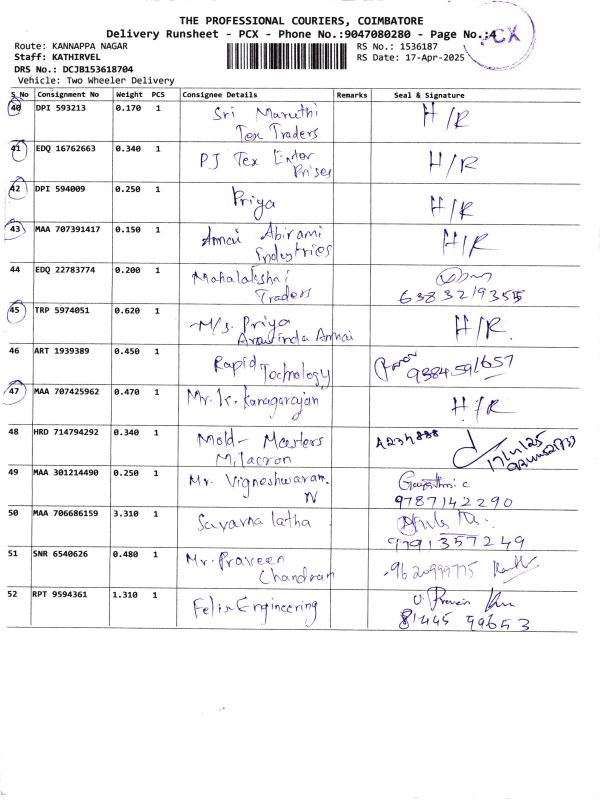 THE PROFESSIONAL COURIERS, COIMBATORE
Delivery Runsheet - PCX - Phone No.:9047080280 - Page No.:4
PCX
Route: KANNAPPA NAGAR RS No.: 1536187
Staff: KATHIRVEL RS Date: 17-Apr-2025
DRS No.: DCJB153618704
Vehicle: Two Wheeler Delivery
S No Consignment No Weight PCS Consignee Details Remarks Seal & Signature
40 DPI 593213 0.170 1 Sri Maruthi H/R
Tex Traders
41 EDQ 16762663 0.340 1 PJ Tex Enter H/R
Prises
42 DPI 594009 0.250 1 Priya H/R
43 MAA 707391417 0.150 1 Annai Abirami H/R
Industries
44 EDQ 22783774 0.200 1 Mahalakshai
Traders 6383219355
45 TRP 5974051 0.620 1 M/s. Priya H/R
Aravinda Annai
46 ART 1939389 0.450 1 Rapid
Technology 9384591657
47 MAA 707425962 0.470 1 Mr. K. Kanagarajan H/R
48 HRD 714794292 0.340 1 Mold - Masters
Milacron 17/4/25
49 MAA 301214490 0.250 1 Mr. Vigneshwaran. Gayathri.c
N 9787142290
50 MAA 706686159 3.310 1 Suvarna latha
9791357249
51 SNR 6540626 0.480 1 Mr. Praveen
Chandran
52 RPT 9594361 1.310 1 Felix Engineering
81445 99653